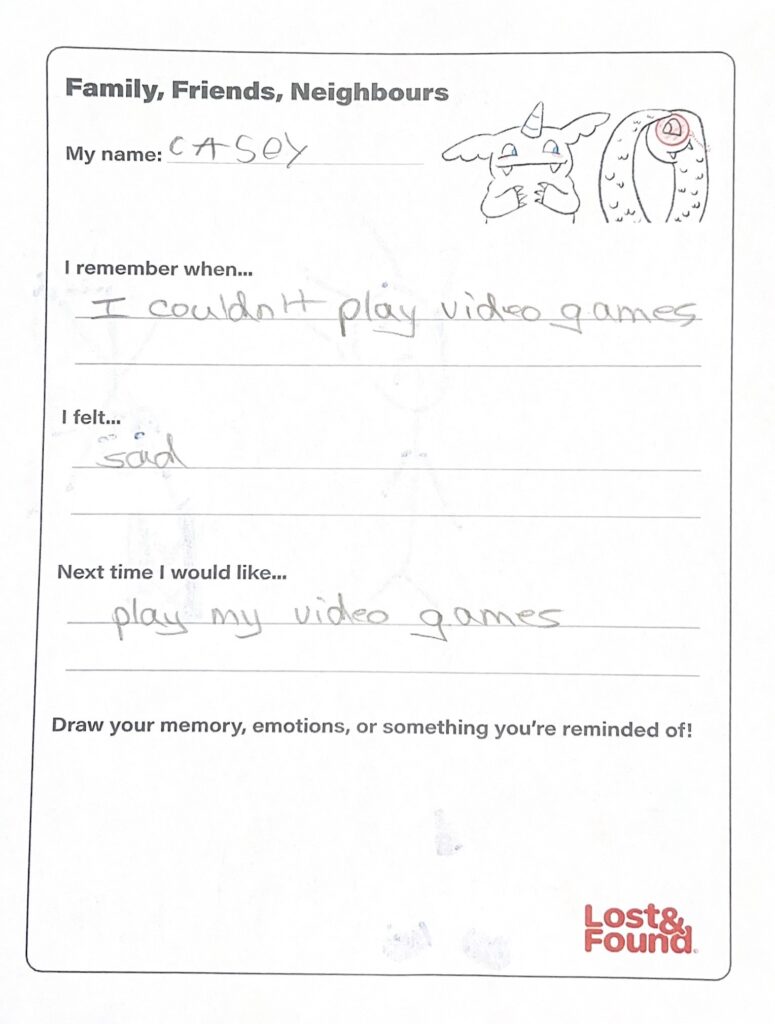 Family, Friends, Neighbours
My name: CASEY
I remember when...
I couldn't play video games
I felt...
sad
Next time I would like...
play my video games
Draw your memory, emotions, or something you're reminded of!
Lost&
Found